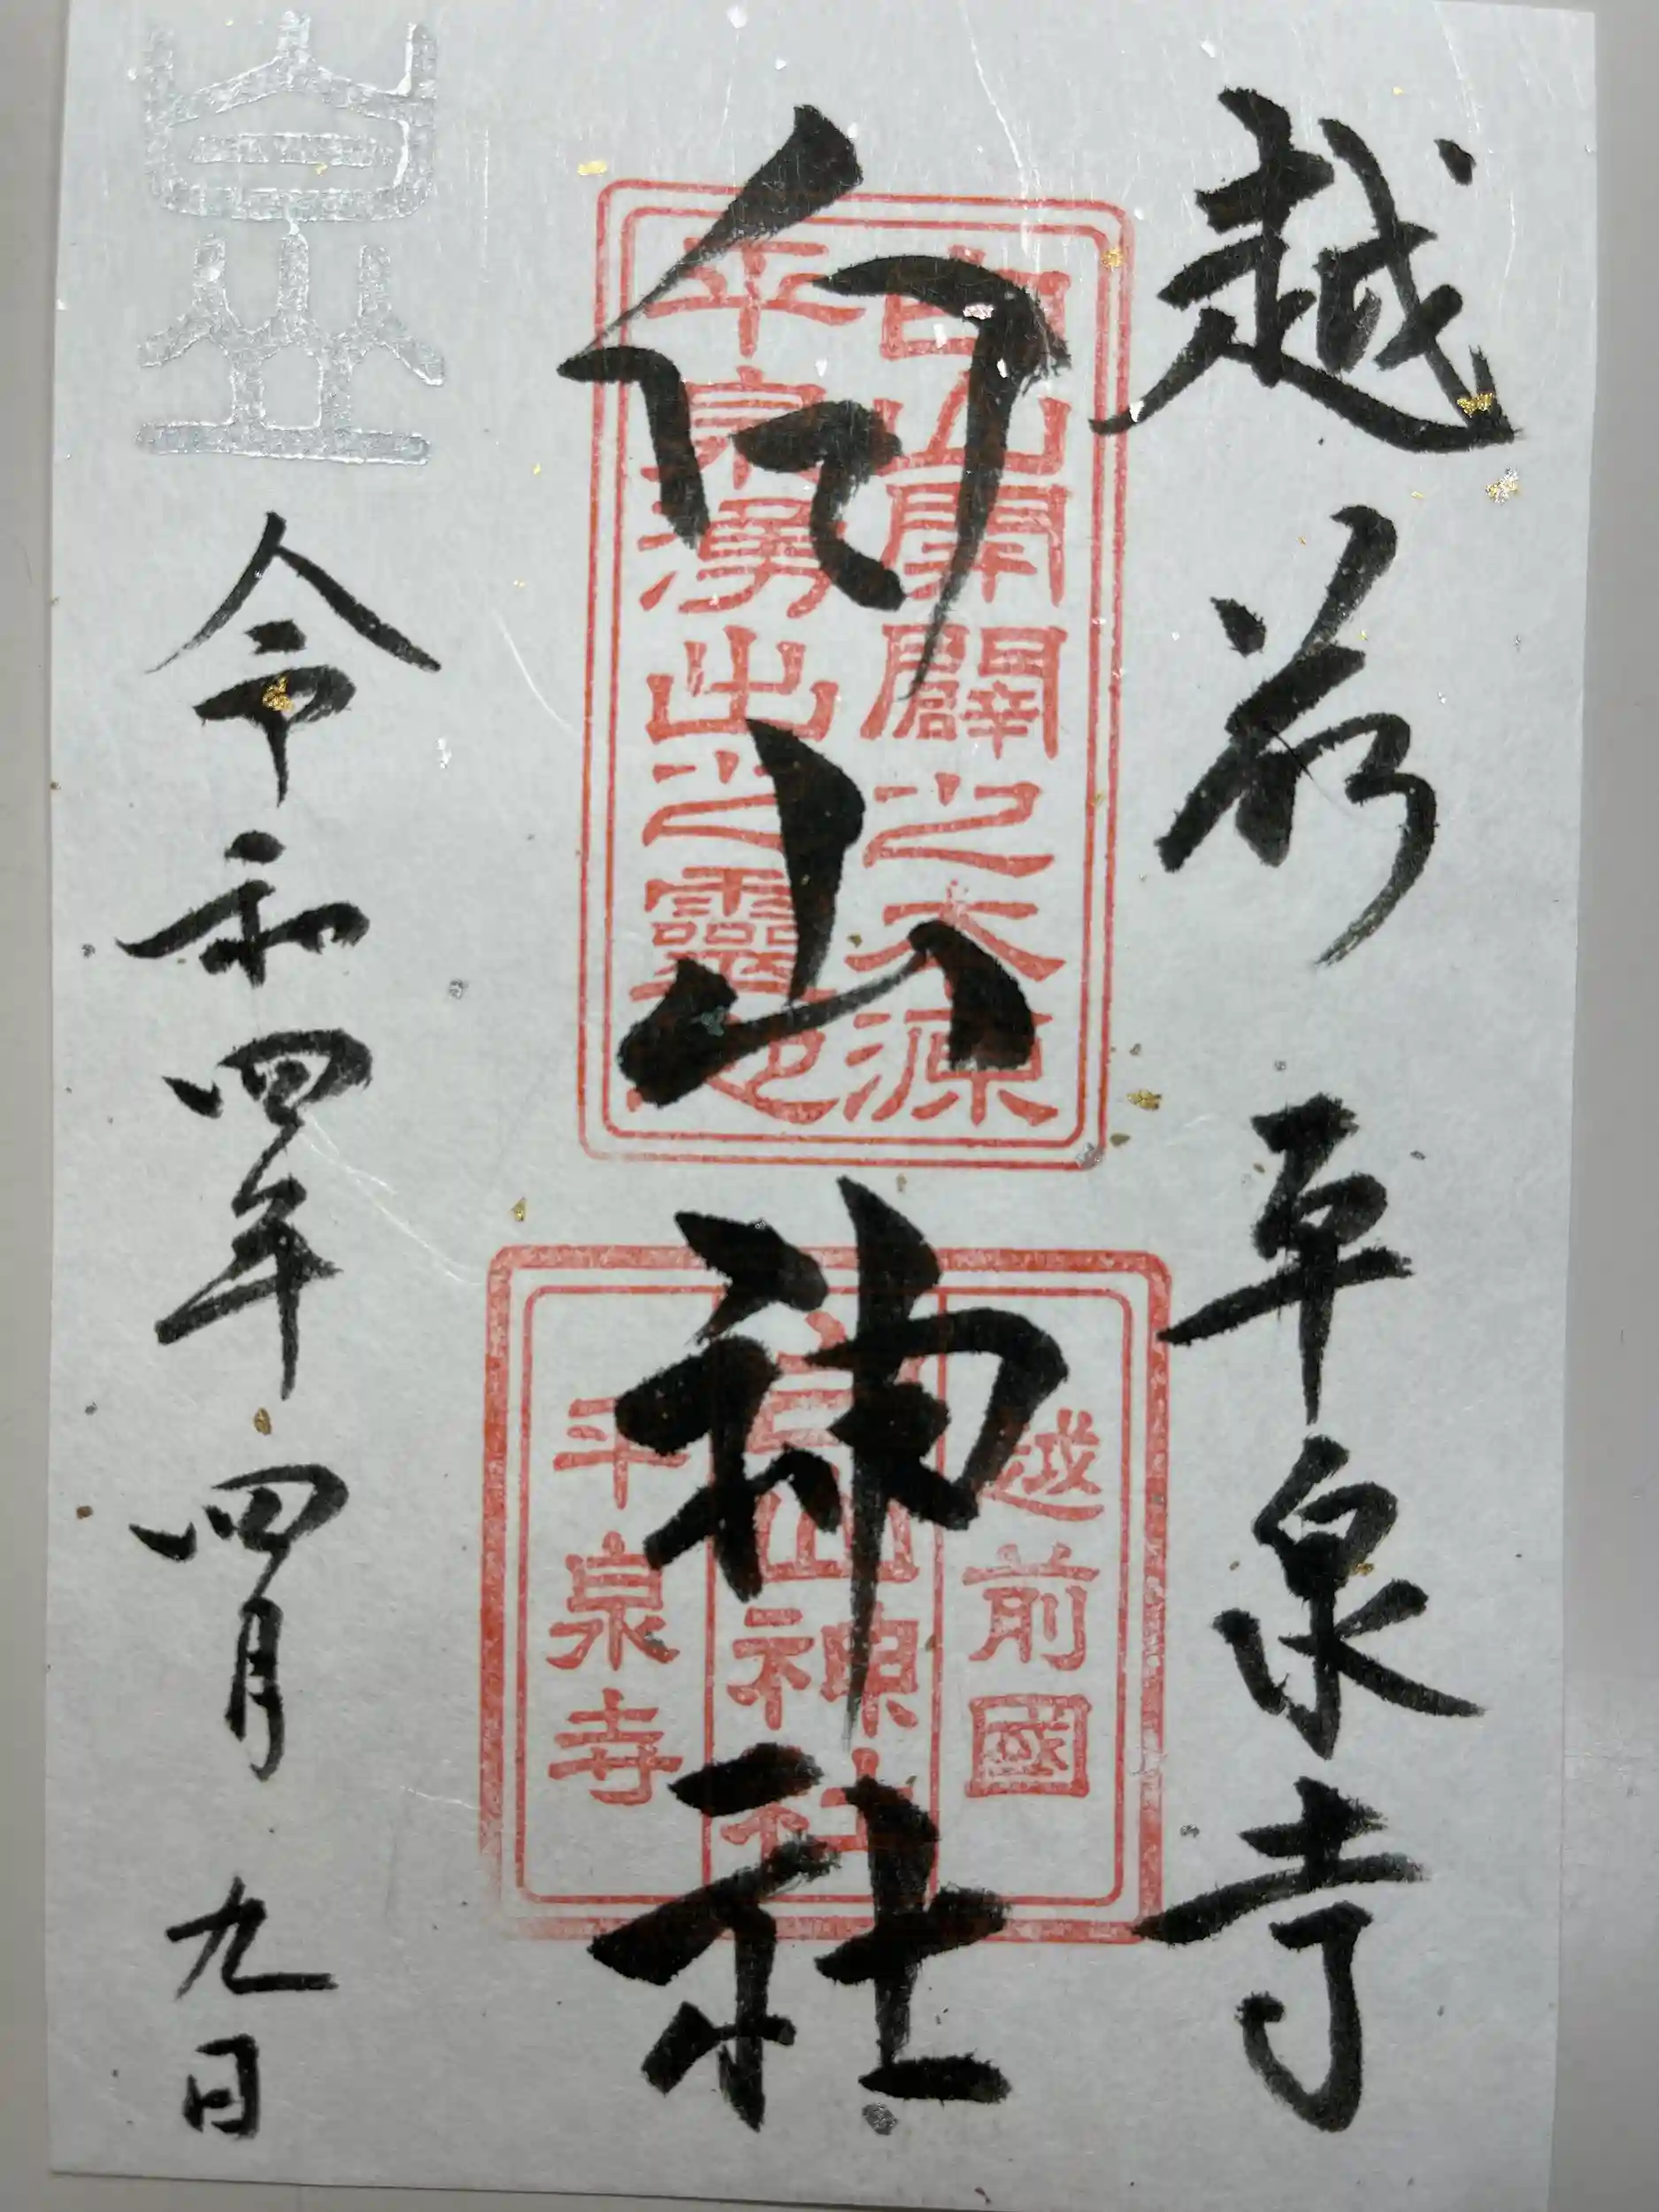 越前 平泉寺
白山神社
令和四年四月九日
白山開闢之大源
平泉湧出之靈也
越前國
白山神社
平泉寺